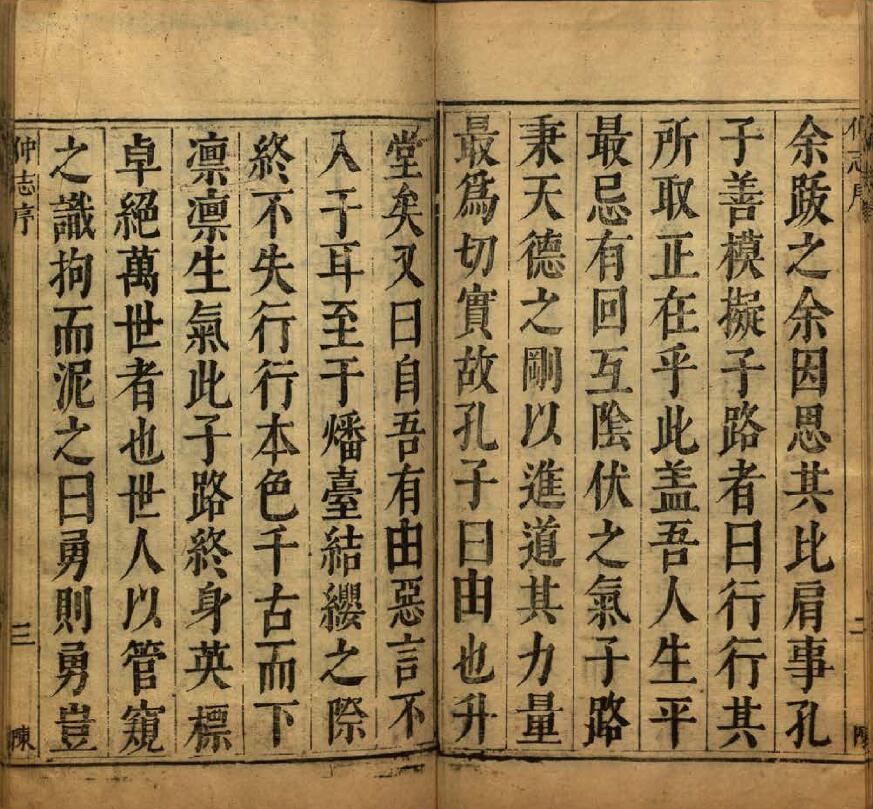 余跋之余因思其比肩事孔
子善模擬子路者曰行行其
所取正在乎此盖吾人生平
最忌有回互陰伏之氣子路
秉天德之剛以進道其力量
最爲切實故孔子曰由也升
堂矣又曰自吾有由惡言不
入于耳至于燔臺結纓之際
終不失行行本色千古而下
凛凛生氣此子路終身英標
卓絕萬世者也世人以管窺
之識拘而泥之曰勇則勇豈
仲志序
三
陳